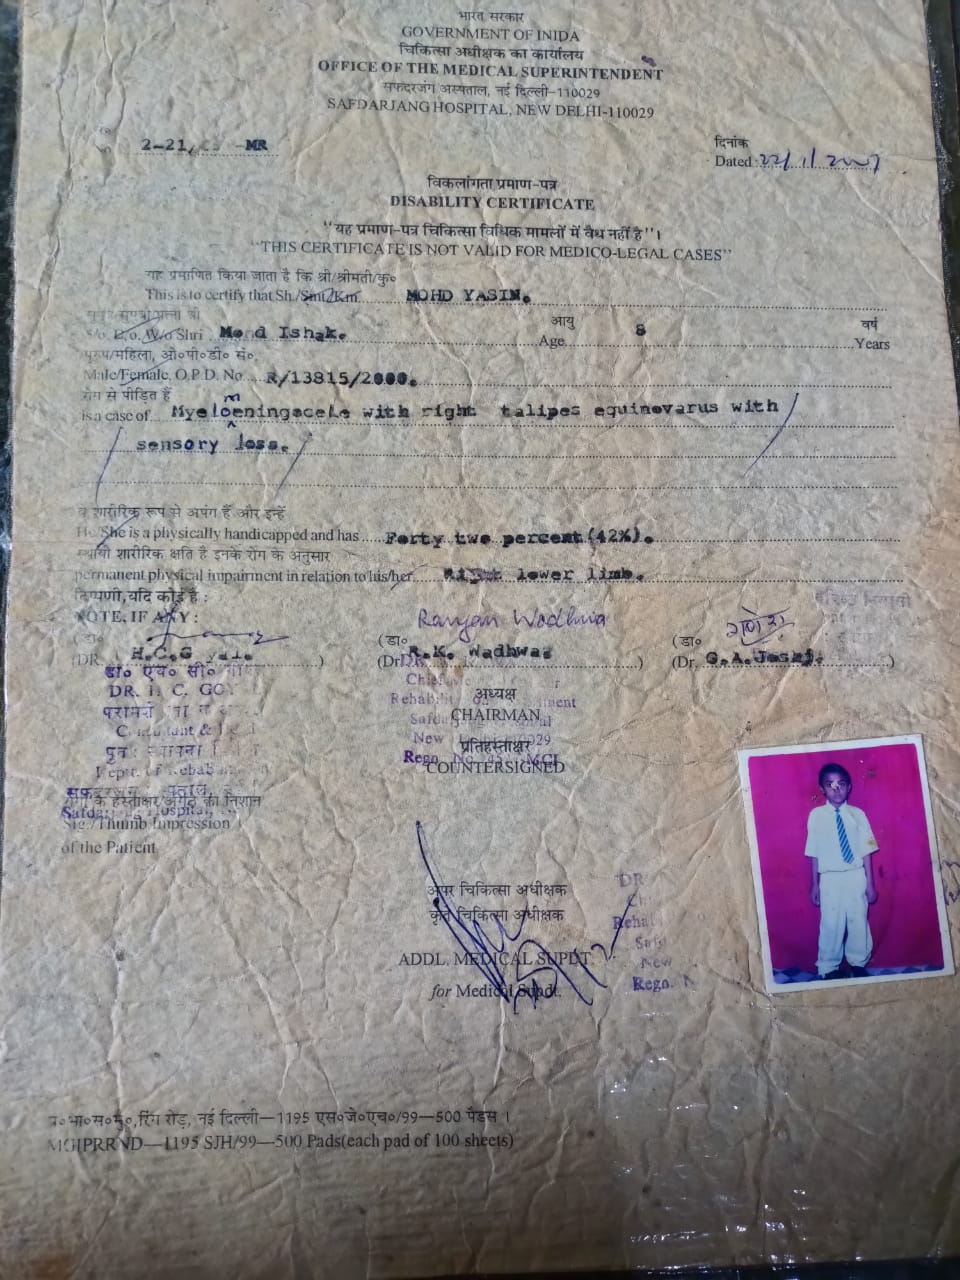 भारत सरकार
GOVERNMENT OF INIDA
चिकित्सा अधीक्षक का कार्यालय
OFFICE OF THE MEDICAL SUPERINTENDENT
सफदरजंग अस्पताल, नई दिल्ली-110029
SAFDARJANG HOSPITAL, NEW DELHI-110029
2-21/ -MR
दिनांक
Dated
विकलांगता प्रमाण-पत्र
DISABILITY CERTIFICATE
"यह प्रमाण-पत्र चिकित्सा विधिक मामलों में वैध नहीं है"।
"THIS CERTIFICATE IS NOT VALID FOR MEDICO-LEGAL CASES"
यह प्रमाणित किया जाता है कि श्री/श्रीमती/कु०
This is to certify that Sh./Smt/Km. MOHD YASIN.
आयु वर्ष
S/o, D/o, W/o Shri Mohd Ishak. Age 8 Years
पुरुष/महिला, ओ०पी०डी० सं०
Male/Female, O.P.D. No. R/13815/2000.
रोग से पीड़ित हैं
is a case of Myelomeningocele with right talipes equinovarus with
sensory loss.
व शारीरिक रूप से अपंग हैं और इन्हें
He/She is a physically handicapped and has Forty two percent(42%).
स्थायी शारीरिक क्षति है इनके रोग के अनुसार
permanent physical impairment in relation to his/her Right lower limb.
टिप्पणी, यदि कोई है :
NOTE, IF ANY :
Ranjan Wadhwa
गणेश
(डा० (डा० (डा०
(DR. H.C.G ) (Dr. R.K. Wadhwa ) (Dr. G.A.Joshi. )
डा० एच० सी०
DR. H. C. GOY
Consultant &
Deptt. of Rehab
Safdarjang Hospital,
Chief
Rehabili
New Delhi 110029
Regn. No. MCI
अध्यक्ष
CHAIRMAN
प्रतिहस्ताक्षर
COUNTERSIGNED
रोगी के हस्ताक्षर/अंगूठे का निशान
Sig./Thumb Impression
of the Patient
अपर चिकित्सा अधीक्षक
कृते चिकित्सा अधीक्षक
ADDL. MEDICAL SUPDT.
for Medical Supdt.
DR
Rehab
New
Regn. N
प्र०भा०स०मु०,रिंग रोड़, नई दिल्ली—1195 एस०जे०एच०/99—500 पैडस ।
MGIPRRND—1195 SJH/99—500 Pads(each pad of 100 sheets)